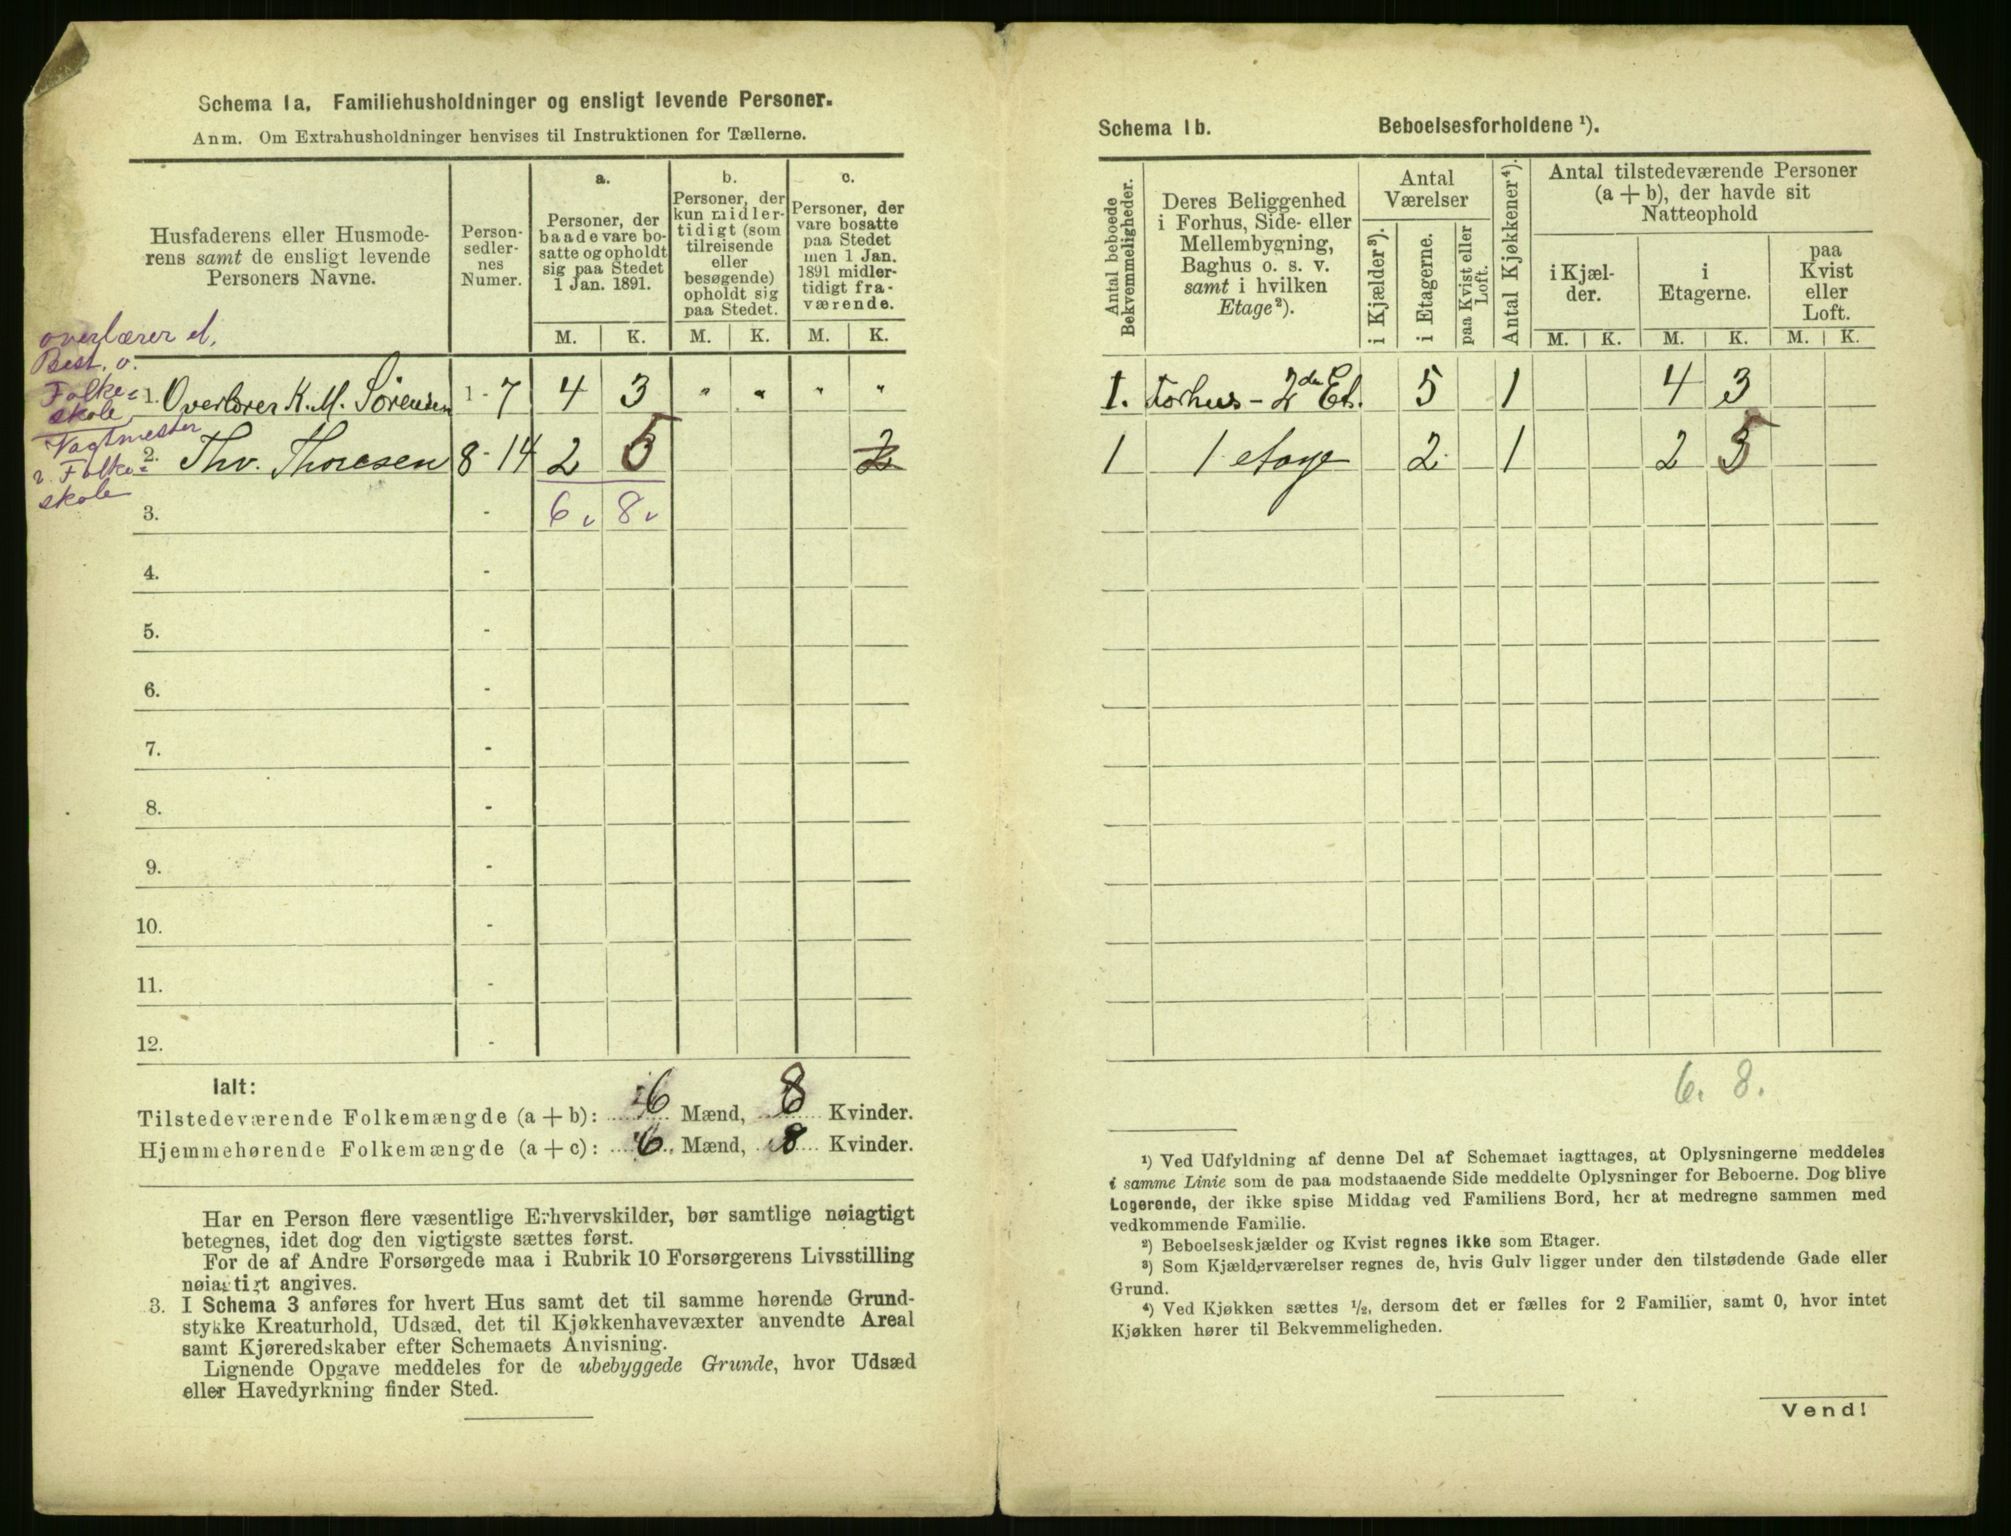 Schema 1a. Familiehusholdninger og ensligt levende Personer.
Anm. Om Extrahusholdninger henvises til Instruktionen for Tællerne.
Husfaderens eller Husmode-
rens samt de ensligt levende
Personers Navne.
Person-
sedler-
nes
Numer.
a.
Personer, der
baade vare bo-
satte og opholdt
sig paa Stedet
1 Jan. 1891.
b.
Personer, der
kun midler-
tidigt (som
tilreisende
eller
besøgende)
opholdt sig
paa Stedet.
c.
Personer, der
vare bosatte
paa Stedet
men 1 Jan.
1891 midler-
tidigt fra-
værende.
M. K. M. K. M. K.
overlærer d.
Best. v.
Folke=
skole
1. Overlærer K. M. Sørensen 1 - 7 4 3 " " " "
Vagtmester
v. Folke=
skole
2. Thv. Thoresen 8 - 14 2 5 2
3. - 6 8
4. -
5. -
6. -
7. -
8. -
9. -
10. -
11. -
12. -
Ialt:
Tilstedeværende Folkemængde (a + b): 6 Mænd, 8 Kvinder.
Hjemmehørende Folkemængde (a + c): 6 Mænd, 8 Kvinder.
Har en Person flere væsentlige Erhvervskilder, bør samtlige nøiagtigt
betegnes, idet dog den vigtigste sættes først.
For de af Andre Forsørgede maa i Rubrik 10 Forsørgerens Livsstilling
nøiagtigt angives.
3. I Schema 3 anføres for hvert Hus samt det til samme hørende Grund-
stykke Kreaturhold, Udsæd, det til Kjøkkenhavevæxter anvendte Areal
samt Kjøreredskaber efter Schemaets Anvisning.
Lignende Opgave meddeles for de ubebyggede Grunde, hvor Udsæd
eller Havedyrkning finder Sted.
Schema 1b. Beboelsesforholdene ¹).
Antal beboede
Bekvemmeligheder.
Deres Beliggenhed
i Forhus, Side- eller
Mellembygning,
Baghus o. s. v.
samt i hvilken
Etage²).
Antal
Værelser
i Kjælder³).
i Etagerne.
paa Kvist eller
Loft.
Antal Kjøkkener⁴).
Antal tilstedeværende Personer
(a + b), der havde sit
Natteophold
i Kjæl-
der.
i
Etagerne.
paa
Kvist
eller
Loft.
M. K. M. K. M. K.
1. Forhus - 2den Et. 5 1 4 3
1 1 etage 2 1 2 5
6. 8.
¹) Ved Udfyldning af denne Del af Schemaet iagttages, at Oplysningerne meddeles
i samme Linie som de paa modstaaende Side meddelte Oplysninger for Beboerne. Dog blive
Logerende, der ikke spise Middag ved Familiens Bord, her at medregne sammen med
vedkommende Familie.
²) Beboelseskjælder og Kvist regnes ikke som Etager.
³) Som Kjælderværelser regnes de, hvis Gulv ligger under den tilstødende Gade eller
Grund.
⁴) Ved Kjøkken sættes ½, dersom det er fælles for 2 Familier, samt 0, hvor intet
Kjøkken hører til Bekvemmeligheden.
Vend!